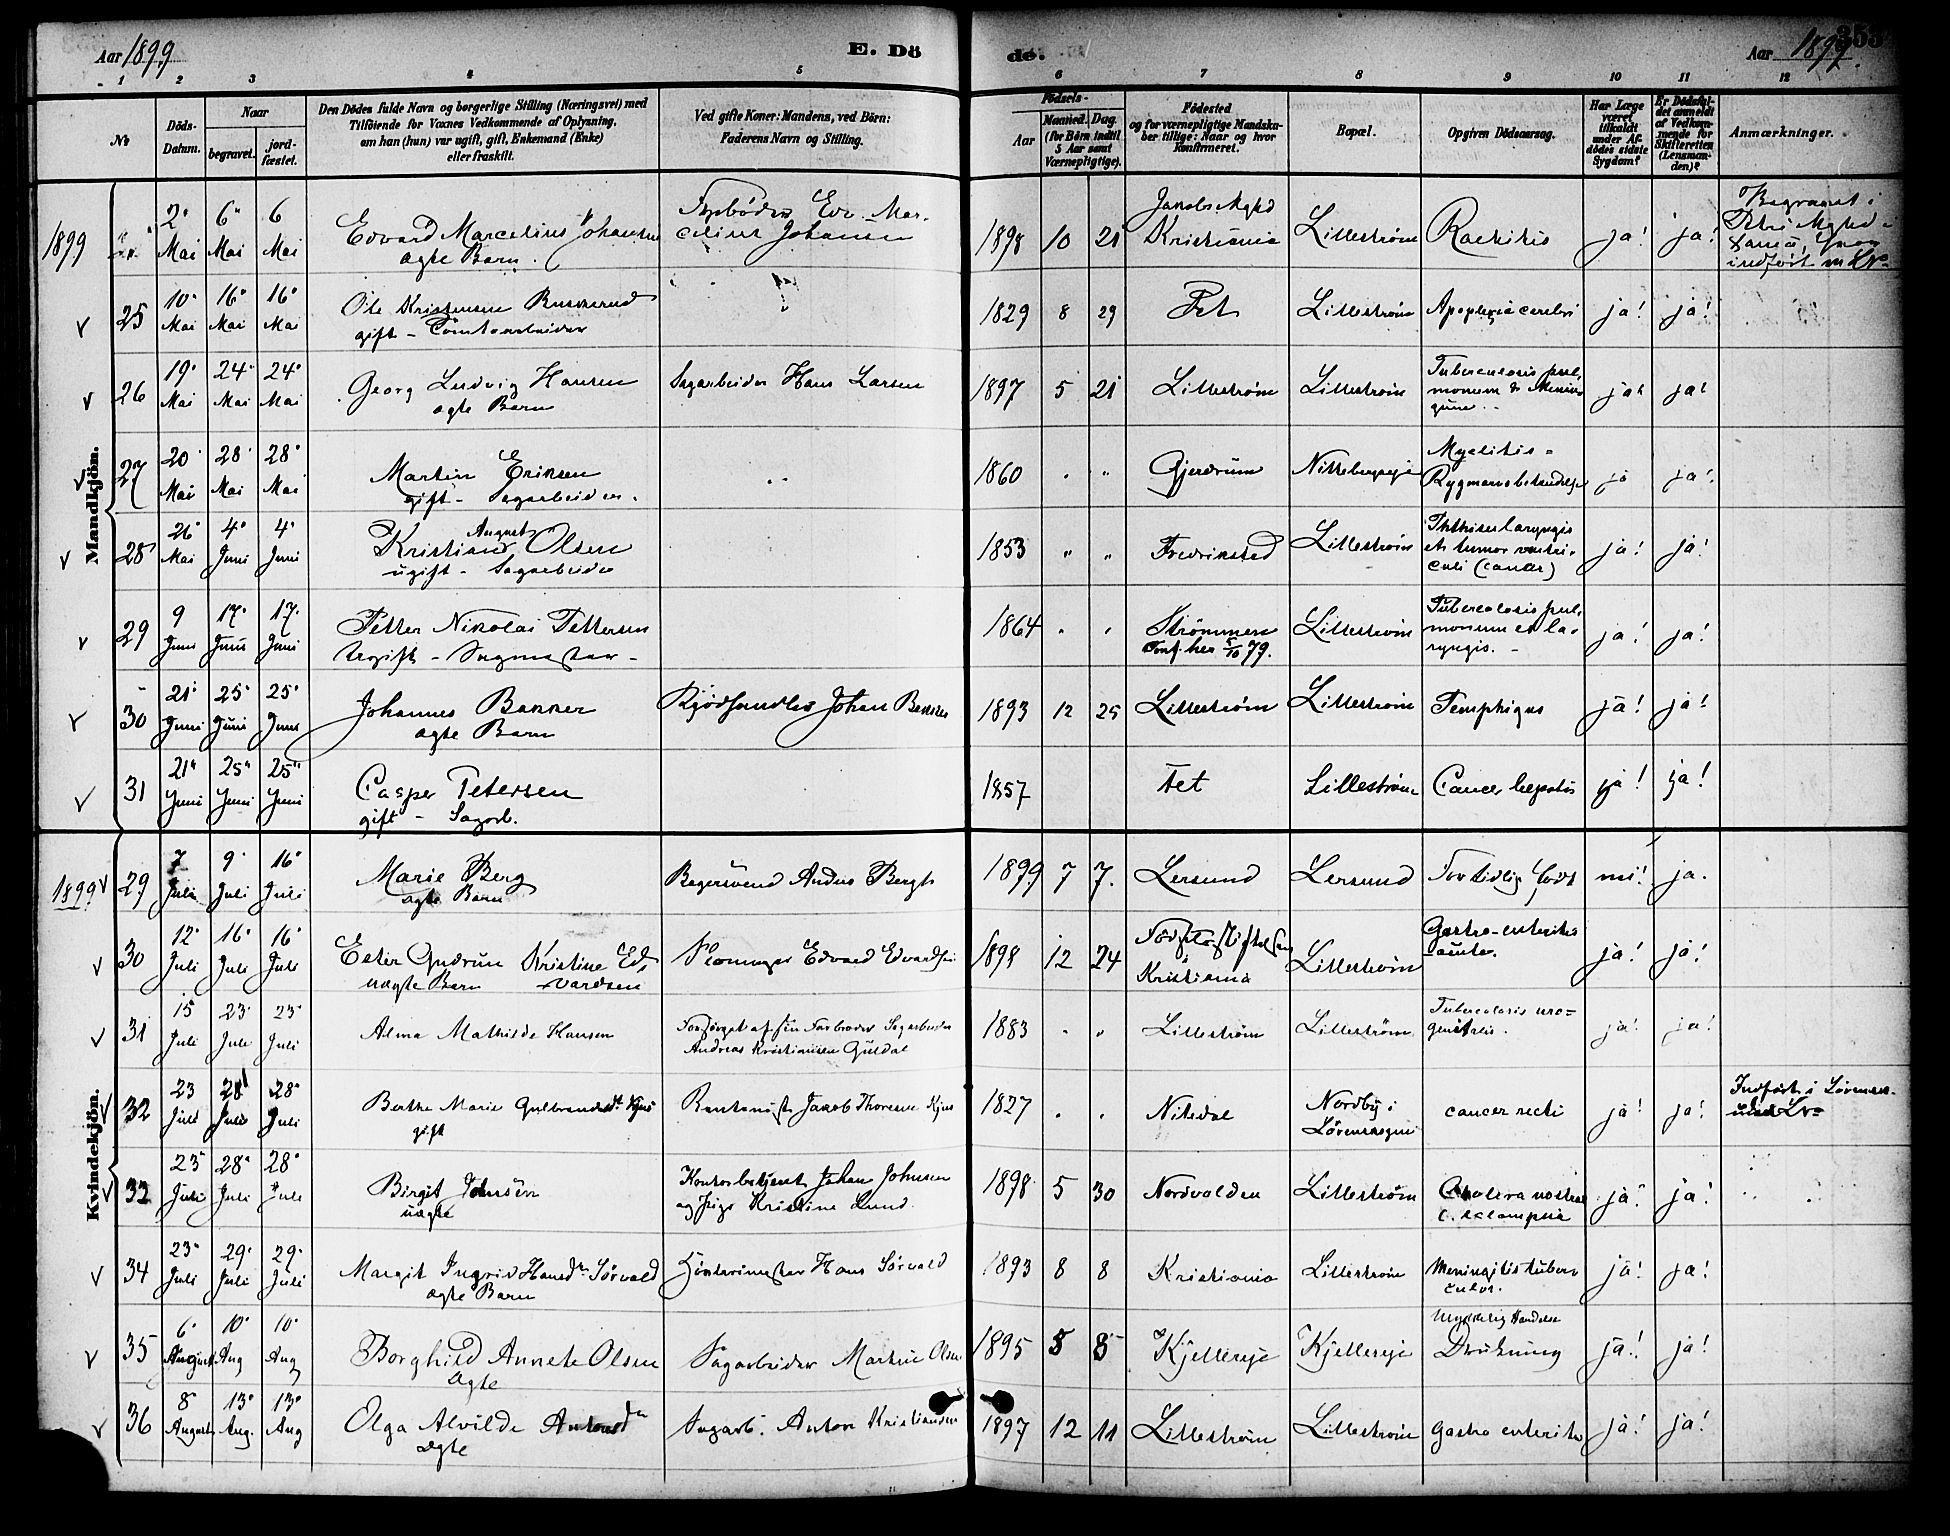 Aar 1899
E. Dö
de.
Aar 1899.
353
1 2 3 4 5 6 7 8 9 10 11 12
No
Döds-Datum.
Naar
begravet.
jordfæstet.
Den Dödes fulde Navn og borgerlige Stilling (Næringsvei) med
Tilföiende for Voxnes Vedkommende af Oplysning,
om han (hun) var ugift, gift, Enkemand (Enke)
eller fraskilt.
Ved gifte Koner: Mandens, ved Börn:
Faderens Navn og Stilling.
Födsels-
Aar
Maaned. Dag.
(for Börn indtil
5 Aar samt
Værnepligtige).
Födested
og for værnepligtige Mandskaber tillige: Naar og hvor
konfirmeret.
Bopæl.
Opgiven Dödsaarsag.
Har Læge
været
tilkaldt
under Afdödes sidste
Sygdom?
Er Dödsfaldet anmeldt
af Vedkommende for
Skifteretten
(Lensmanden)?
Anmærkninger.
Mandkjön.
1899 2. Mai 6. Mai 6 Mai Edvard Marcelius Johansen ægte Barn. Edv. Marcelius Johansen 1898 10 21 Jakobs Mghd Kristiania Lillestrøm Rachitis ja! ja! Begravet i Petri Mghd
25 10. Mai 16. Mai 16. Mai Ole Kristensen Buskerud gift - Tomtearbeider 1829 8 29 Fet Lillestrøm Apoplexia cerebri ja! ja!
26 19. Mai 24. Mai 24. Mai Georg Ludvig Hansen ægte Barn Sagarbeider Hans Larsen 1897 5 21 Lillestrøm Lillestrøm Tuberculosis pulmonum & Meningum ja! ja!
27 20. Mai 28. Mai 28. Mai Martin Eriksen gift - Sagarbeider. 1860 " " Gjerdrum Nitteberg Myelitis = Rygmarvsbetændelse ja ja!
28 26. Mai 4. Juni 4. Juni Kristian August Olsen ugift - Sagarbeider 1853 " " Fredrikstad Lillestrøm Phthisis laryngis et tumor ventriculi (cancer) ja! ja!
29 9 Juni 17. Juni 17. Juni Petter Nikolai Pettersen Ugift - Sagmester - 1864 " " Strømmen Conf. her 5/10 79. Lillestrøm Tuberculosis pulmonum et laryngis. - ja! ja!
30 21. Juni 25. Juni 25. Juni Johannes Bakker ægte Barn Kjødhandler Johan Bakker 1893 12 25 Lillestrøm Lillestrøm Pemphigus ja! ja!
31 21" Juni 25" Juni 25" Juni Casper Petersen gift - Sagarb. 1857 Fet Lillestrøm Cancer hepatis ja! ja!
Kvindekjön.
1899 29 7 Juli 9. Juli 16. Juli Marie Berg ægte Barn Bagersvend Anders Bergh 1899 7 7. Lersund Lersund For tidlig født nei! ja.
30 12. Juli 16. Juli 16. Juli Ester Gudrun Kristine Edvardsen uægte Barn Edvard Edvardsen 1898 12 24 Fødselsstiftelsen Kristiania Lillestrøm Gastro-enteritis acuta. ja! ja!
31 15 Juli 23. Juli 23. Juli Alma Mathilde Hansen Forsørget af sin Farbroder Sagarbeider Andreas Kristiansen Guldal 1883 " " Lillestrøm Lillestrøm Tuberculosis urogenitalis. ja! ja!
32 23 Juli 28. Juli 28. Juli Berthe Marie Gulbrandsdt. Kjus gift Jakob Thoresen Kjus 1827 " " Nitedal Nordby i Lørenskogen cancer recti ja! ja! Indført i Lørenskog uden No
33 23 Juli 28. Juli 28. Juli Birgit Johnsen uægte Kontorbetjent Johan Johnsen og Pige Kristine Lund. 1898 5 30 Nordvolden Lillestrøm Cholera nostras c. eclampsia ja! ja!
34 23. Juli 29. Juli 29. Juli Margit Ingrid Hansdtr Sørvald ægte Barn Hans Sørvald 1893 8 8 Kristiania Lillestrøm Meningitis tuberculos. ja! ja!
35 6. August 10. Aug 10. Aug Borghild Annete Olsen ægte Sagarbeider Martin Olsen 1895 5 5 Kjellereje Kjellereje Ulykkelig Hændelse Drukning ja! ja!
36 8 August 13. Aug. 13. Aug Olga Alvilde Antonsdtr ægte Sagarb. Anton Kristiansen 1897 12 11 Lillestrøm Lillestrøm Gastro enteritis ja! ja!